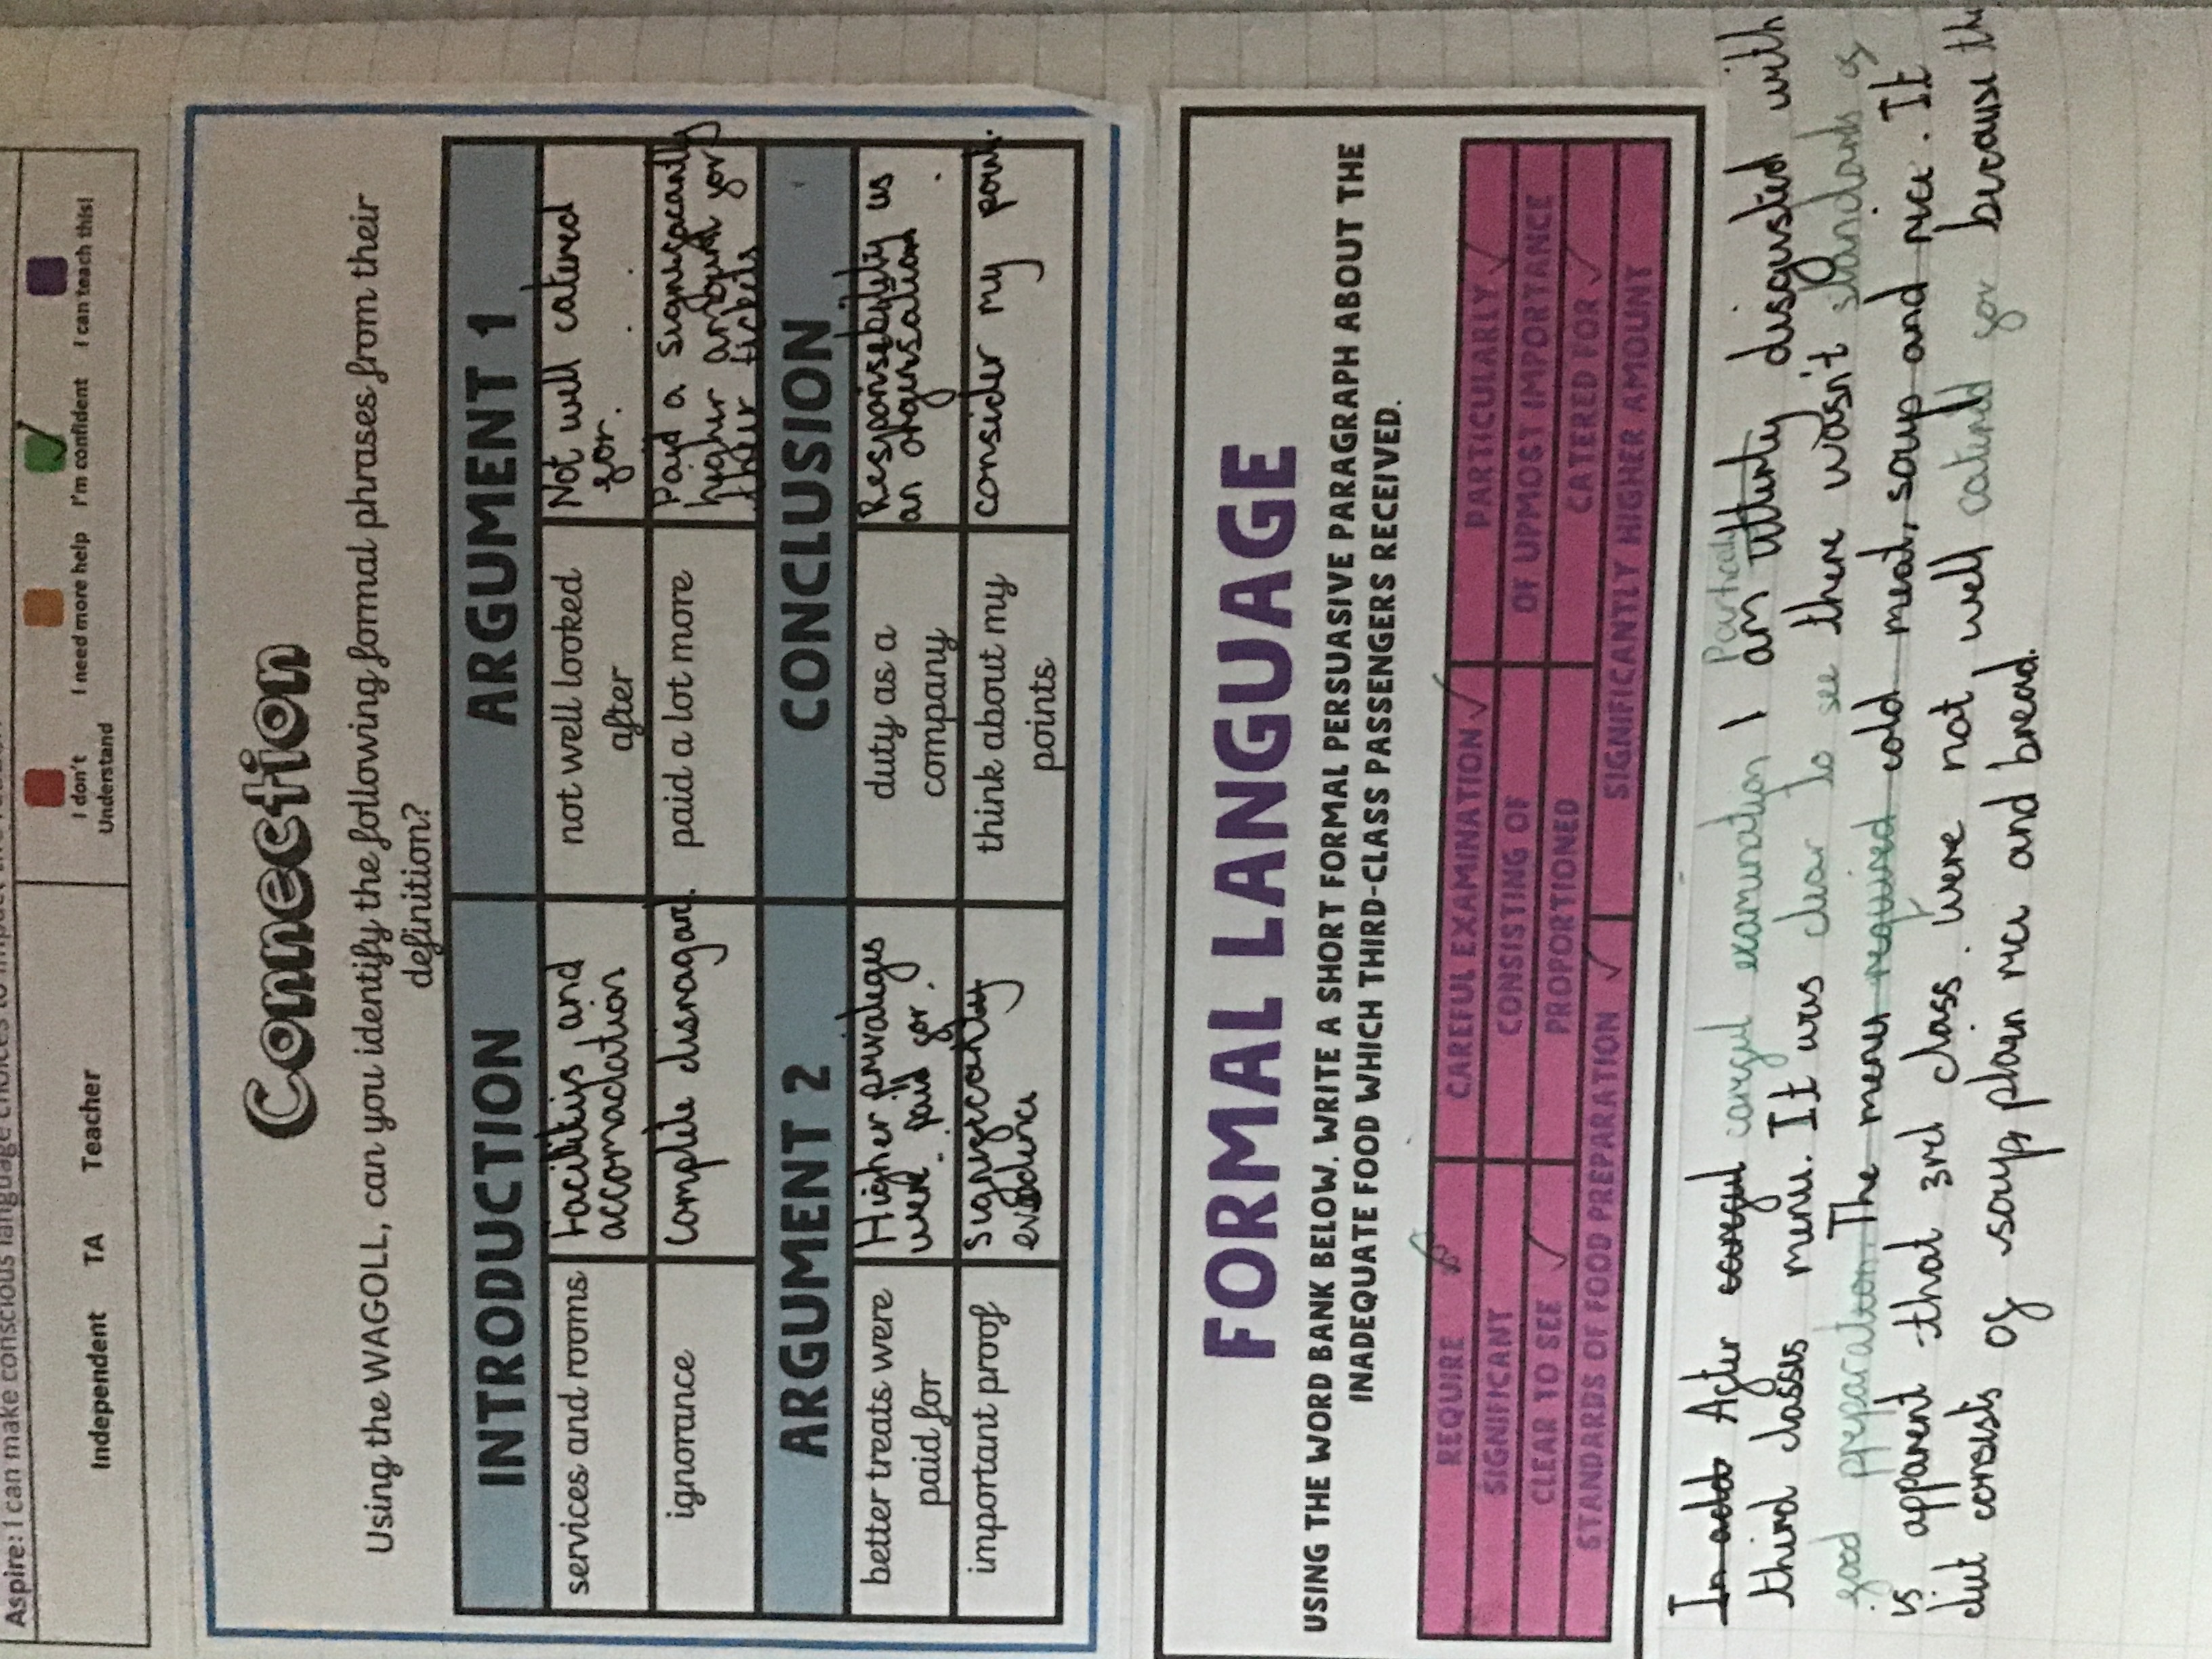 Aspire: I can make conscious language choices to impact the
I don't Understand
I need more help
I'm confident
I can teach this!
Independent TA Teacher
Connection
Using the WAGOLL, can you identify the following formal phrases from their
definition?
INTRODUCTION ARGUMENT 1
services and rooms
Facilitiys and
accomadation
not well looked
after
Not well catered
for.
ignorance
Complete disragard.
paid a lot more
Paid a signifacantly
higher amount for
their tickets
ARGUMENT 2 CONCLUSION
better treats were
paid for
Higher privaleges
were paid for.
duty as a
company
Responsebilty as
an organisation
important proof
Signifcantly
evidence
think about my
points
consider my point.
FORMAL LANGUAGE
USING THE WORD BANK BELOW. WRITE A SHORT FORMAL PERSUASIVE PARAGRAPH ABOUT THE
INADEQUATE FOOD WHICH THIRD-CLASS PASSENGERS RECEIVED.
REQUIRE CAREFUL EXAMINATION PARTICULARLY
SIGNIFICANT CONSISTING OF OF UPMOST IMPORTANCE
CLEAR TO SEE PROPORTIONED CATERED FOR
STANDARDS OF FOOD PREPARATION SIGNIFICANTLY HIGHER AMOUNT
In add After careful careful examination I am utterly disgusted with
third classes menu. It was clear to see there wasn't standards of
good preparation The menu required cold meat, soup and rice. It
is apparent that 3rd class were not well caterd for because the
diet consists of soup plain rice and bread.